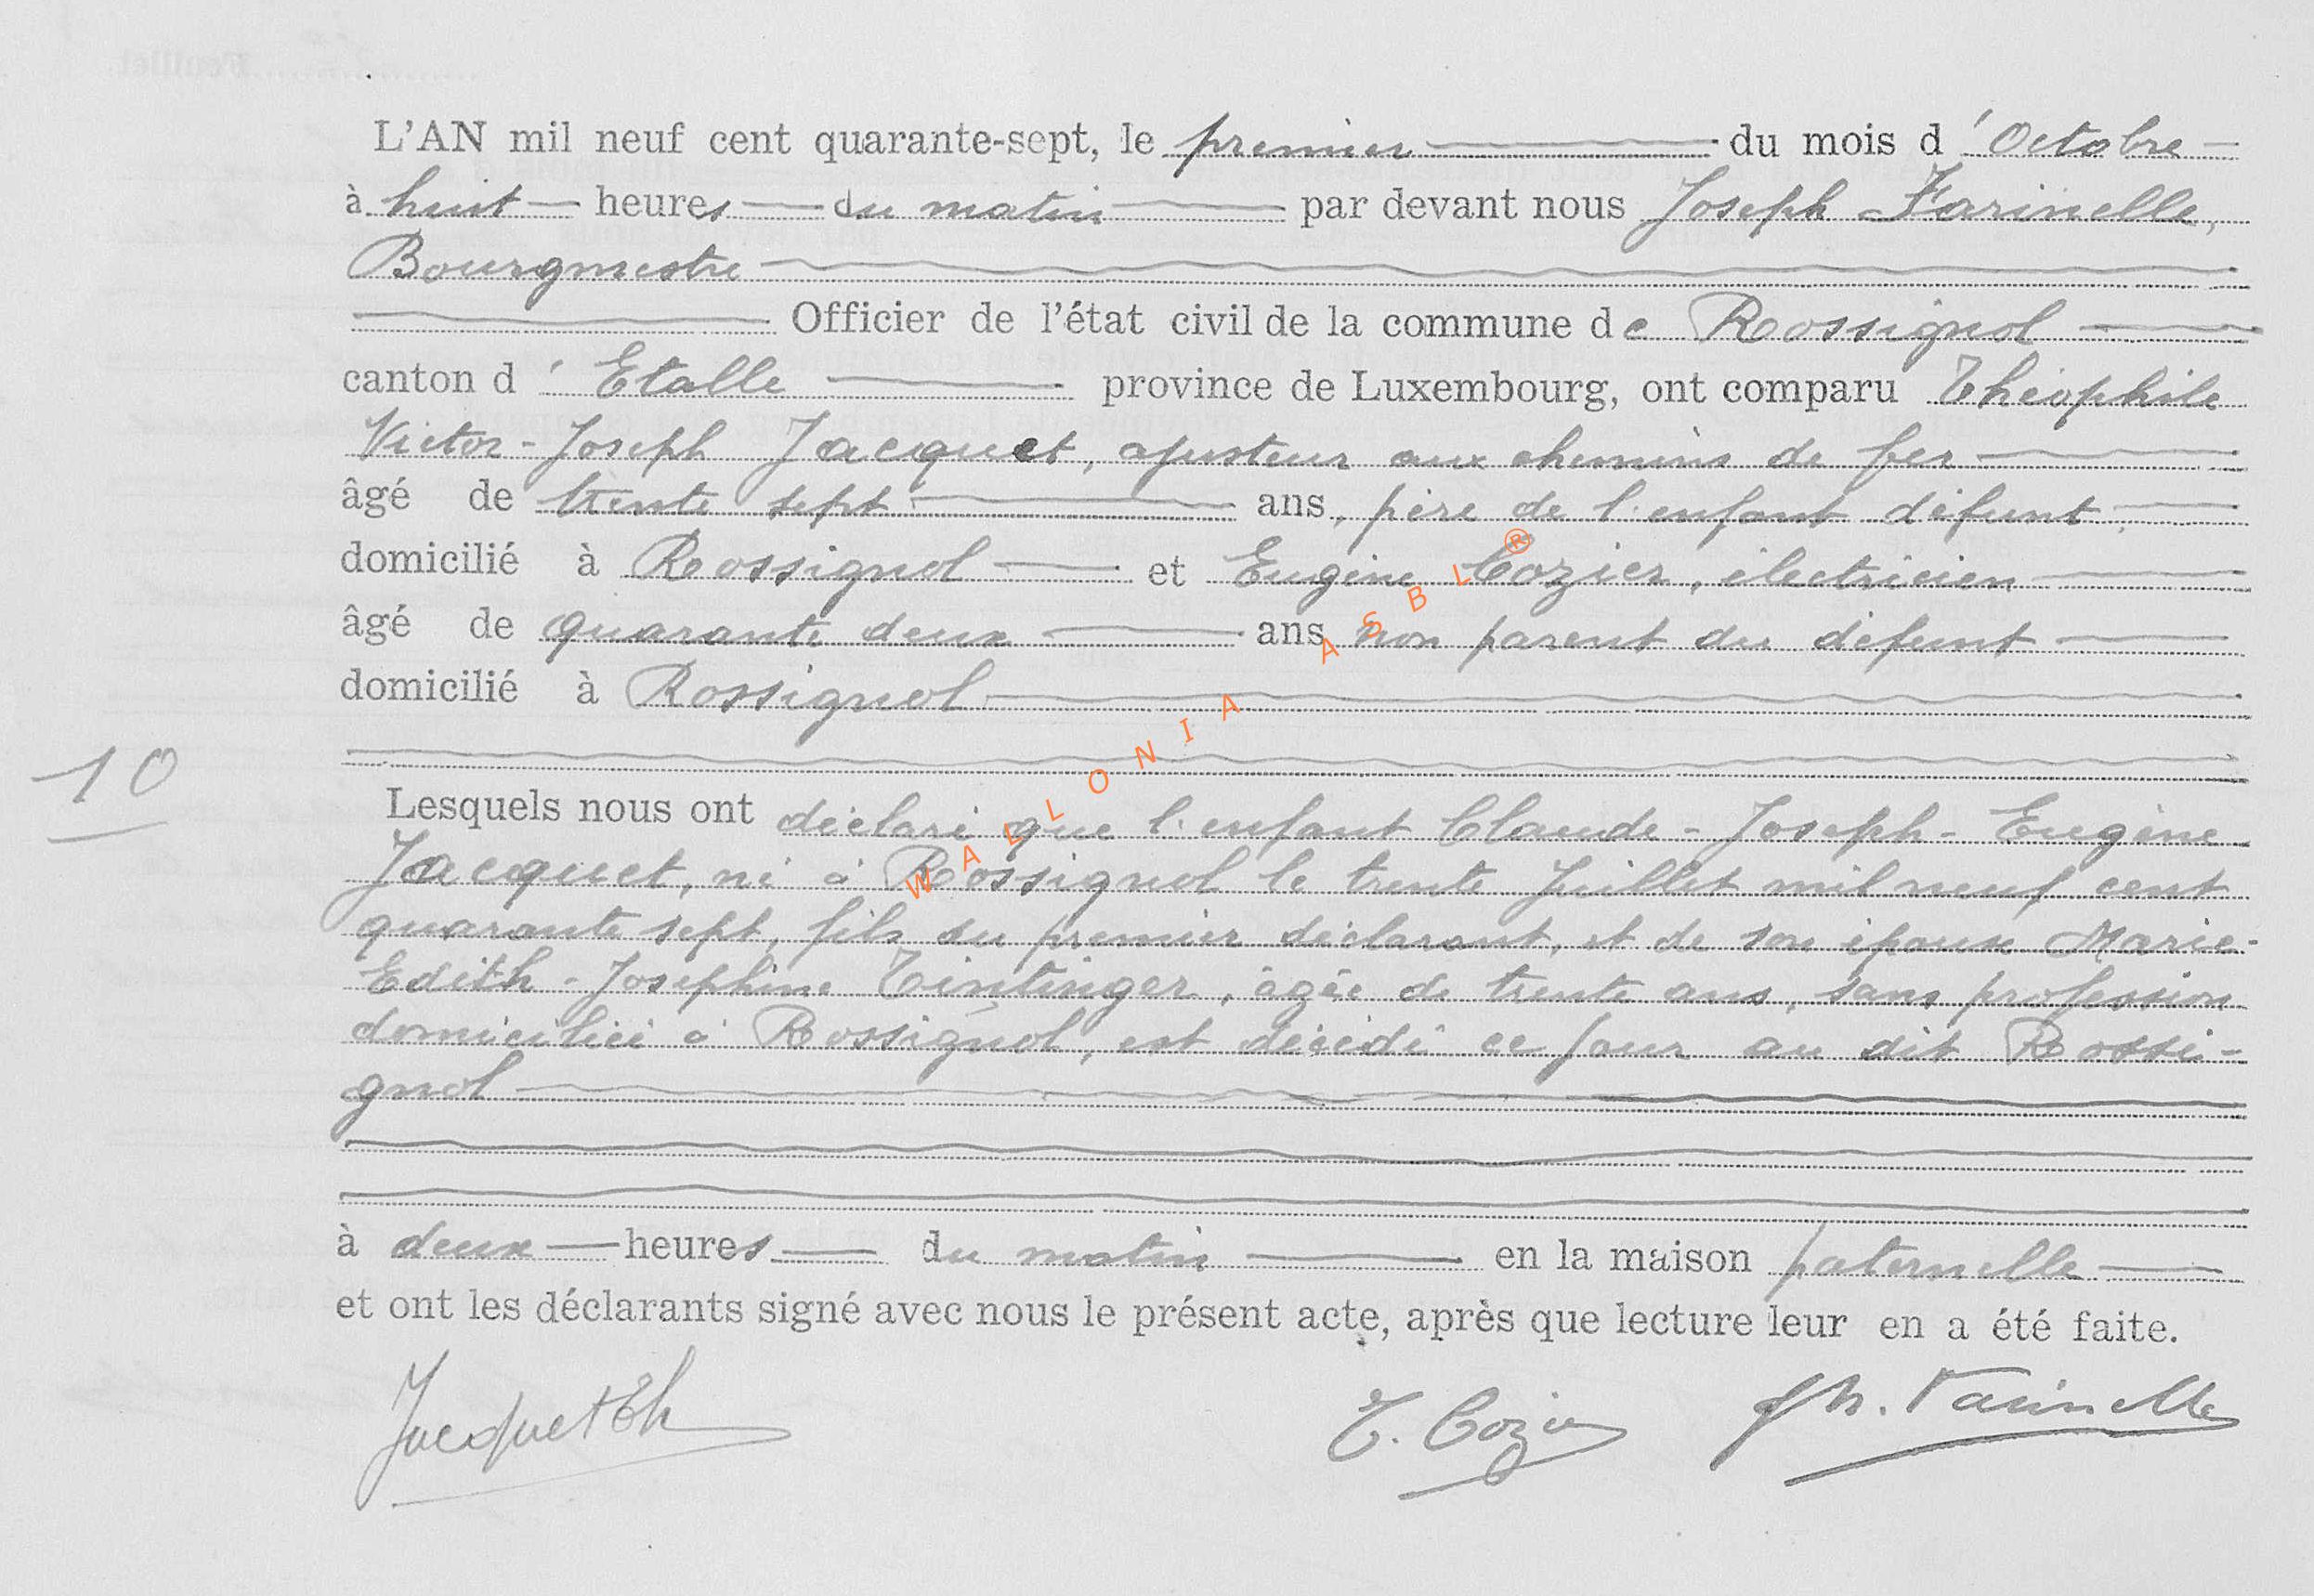 L'AN mil neuf cent quarante-sept, le premier du mois d'Octobre
à huit heures du matin par devant nous Joseph Farinelle,
Bourgmestre
Officier de l'état civil de la commune de Rossignol
canton d'Etalle province de Luxembourg, ont comparu Théophile
Victor-Joseph Jacquet, ajusteur aux chemins de fer
âgé de trente sept ans, père de l'enfant défunt,
domicilié à Rossignol et Eugène Cozier, électricien
âgé de quarante deux ans non parent du défunt
domicilié à Rossignol
10
Lesquels nous ont déclaré que l'enfant Claude-Joseph-Eugène
Jacquet, né à Rossignol le trente Juillet mil neuf cent
quarante sept, fils du premier déclarant, et de son épouse Marie-
Edith-Joséphine Tintinger, âgée de trente ans, sans profession
domiciliée à Rossignol, est décédé ce jour au dit Rossi-
gnol
à deux heures du matin en la maison paternelle
et ont les déclarants signé avec nous le présent acte, après que lecture leur en a été faite.
Jacquet Th E. Cozier Jh. Farinelle
WALLONIA ASBL ®